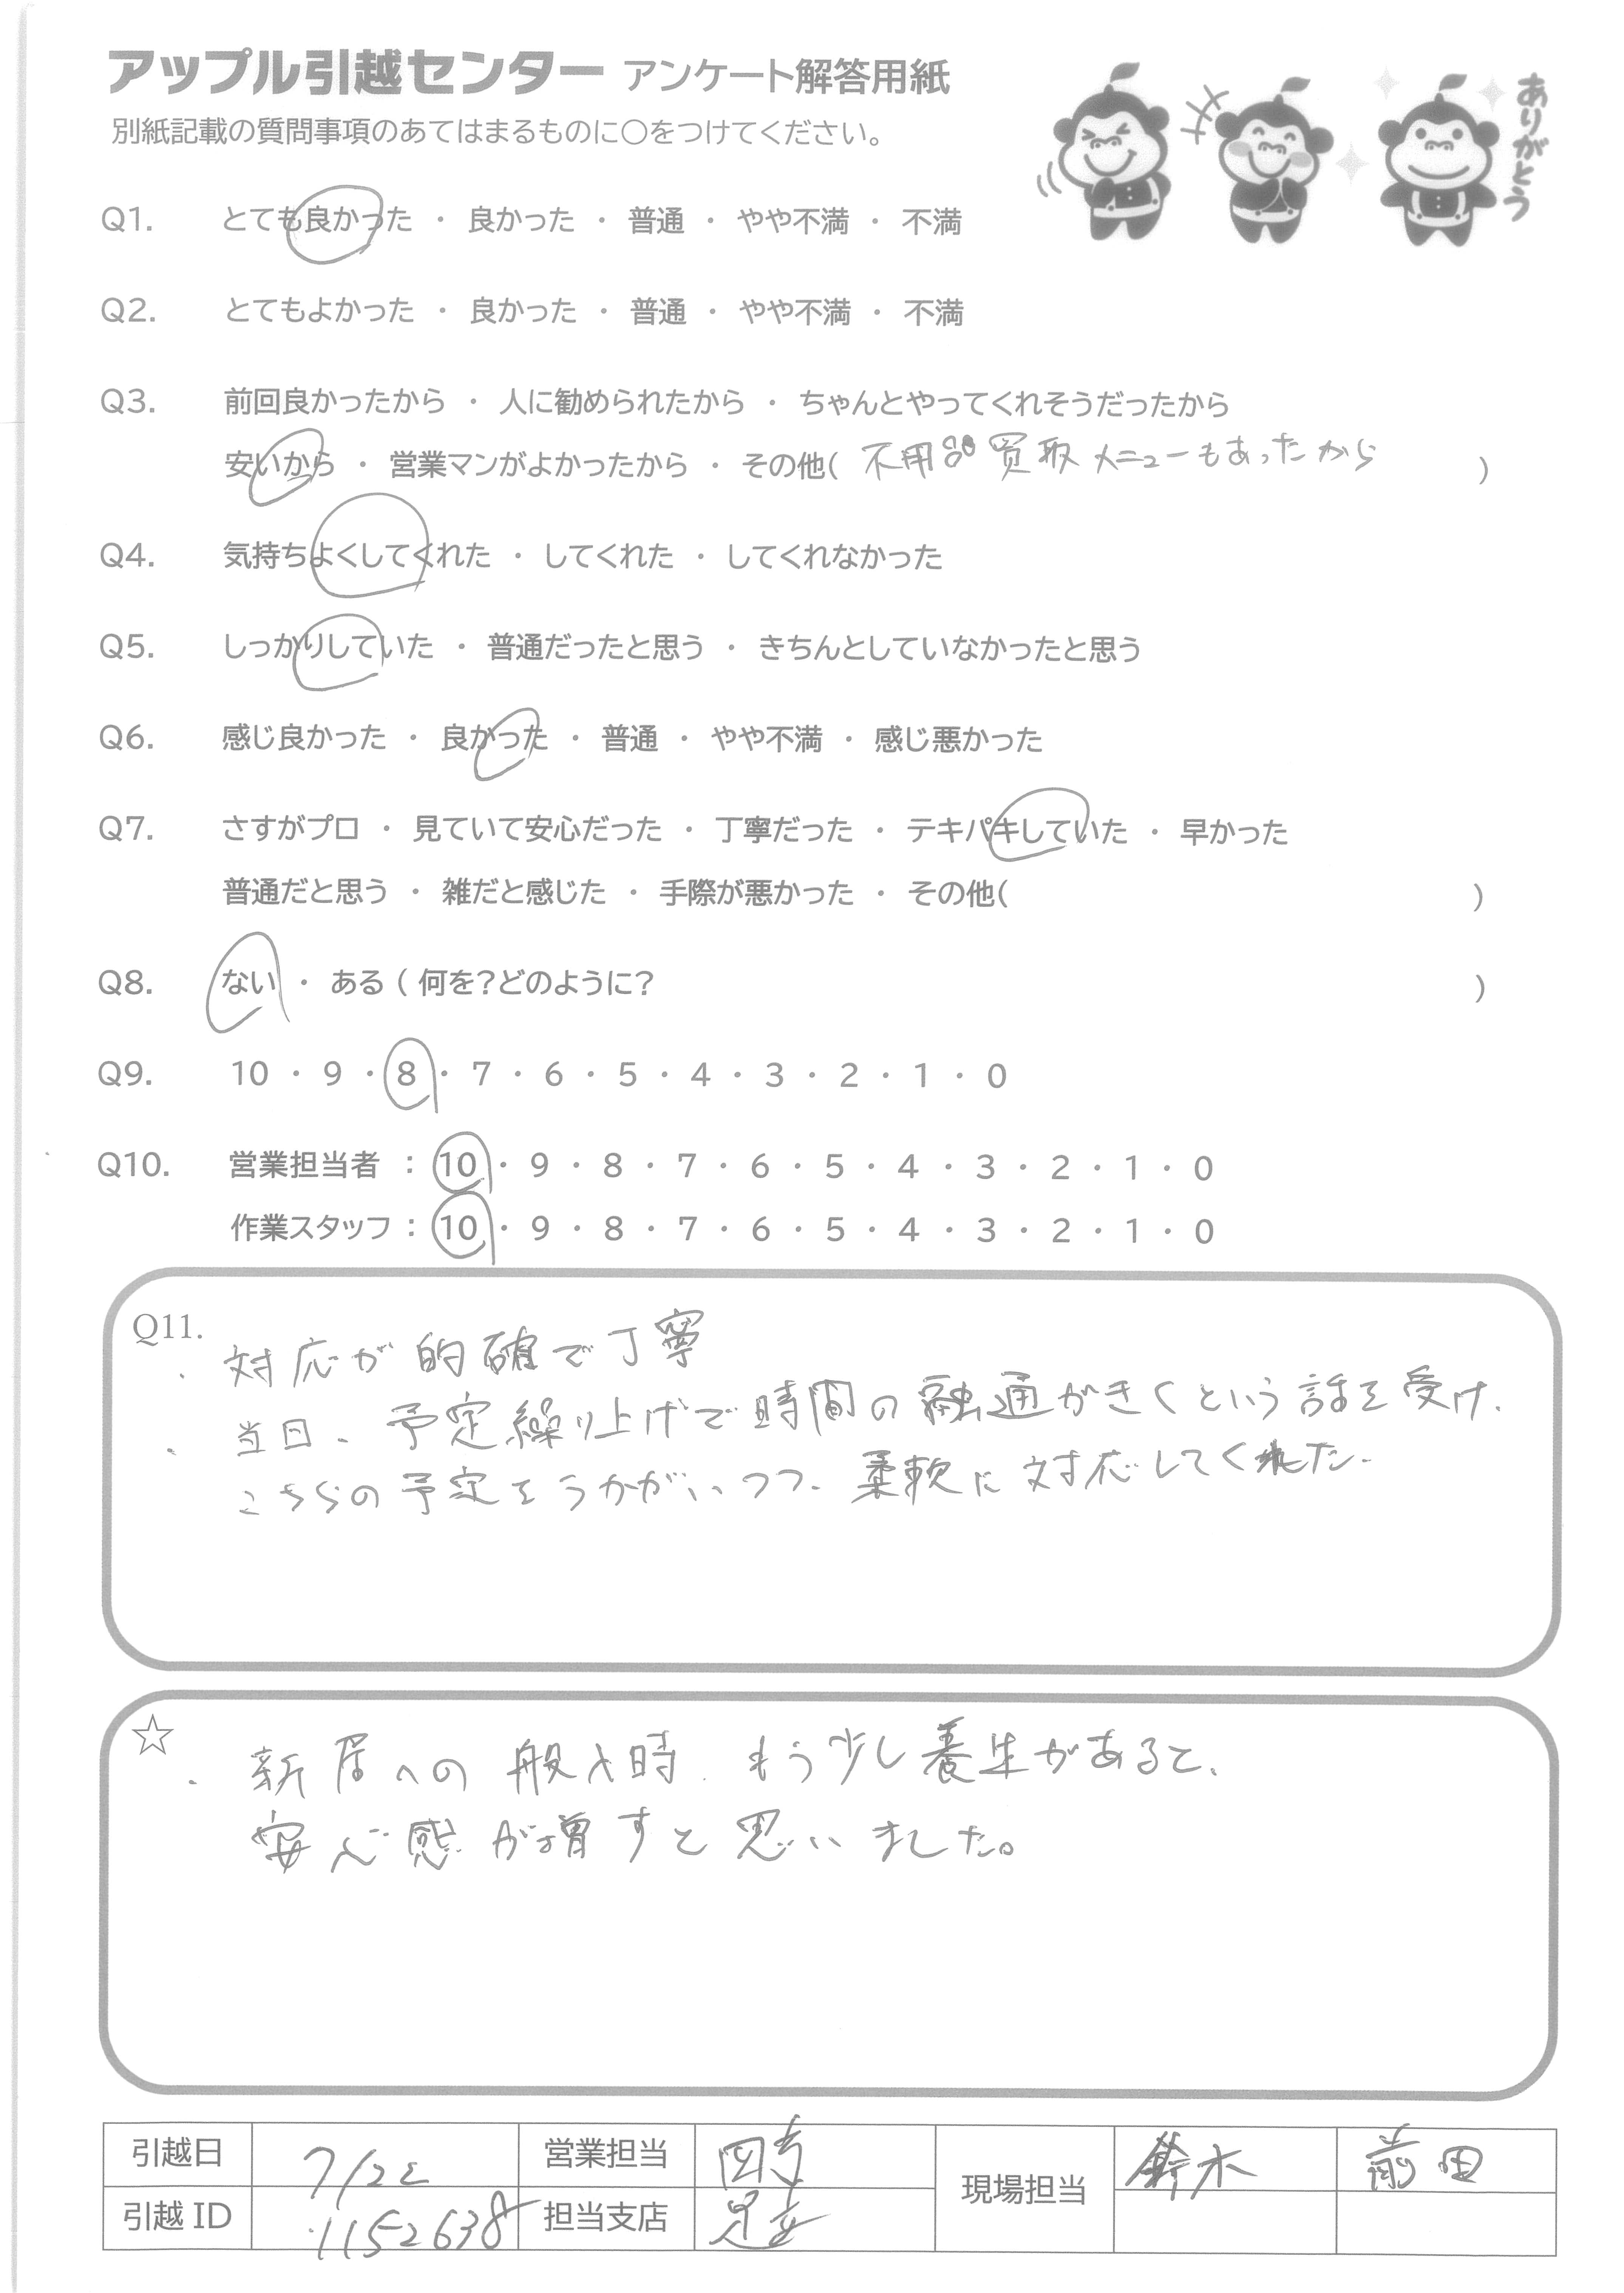 アップル引越センター アンケート解答用紙
ありがとう
別紙記載の質問事項のあてはまるものに○をつけてください。
Q1. とても良かった ・ 良かった ・ 普通 ・ やや不満 ・ 不満
Q2. とてもよかった ・ 良かった ・ 普通 ・ やや不満 ・ 不満
Q3. 前回良かったから ・ 人に勧められたから ・ ちゃんとやってくれそうだったから
安いから ・ 営業マンがよかったから ・ その他( 不用品買取メニューもあったから )
Q4. 気持ちよくしてくれた ・ してくれた ・ してくれなかった
Q5. しっかりしていた ・ 普通だったと思う ・ きちんとしていなかったと思う
Q6. 感じ良かった ・ 良かった ・ 普通 ・ やや不満 ・ 感じ悪かった
Q7. さすがプロ ・ 見ていて安心だった ・ 丁寧だった ・ テキパキしていた ・ 早かった
普通だと思う ・ 雑だと感じた ・ 手際が悪かった ・ その他( )
Q8. ない ・ ある ( 何を?どのように? )
Q9. 10 ・ 9 ・ 8 ・ 7 ・ 6 ・ 5 ・ 4 ・ 3 ・ 2 ・ 1 ・ 0
Q10. 営業担当者 : 10 ・ 9 ・ 8 ・ 7 ・ 6 ・ 5 ・ 4 ・ 3 ・ 2 ・ 1 ・ 0
作業スタッフ : 10 ・ 9 ・ 8 ・ 7 ・ 6 ・ 5 ・ 4 ・ 3 ・ 2 ・ 1 ・ 0
Q11.
・対応が的確で丁寧
・当日、予定繰り上げで時間の融通がきくという話を受け、
こちらの予定をうかがいつつ、柔軟に対応してくれた。
☆
・新居への搬入時、もう少し養生があると、
安心感が増すと思いました。
引越日 7/22 営業担当 現場担当 鈴木 前田
引越ID 1152638 担当支店 足立